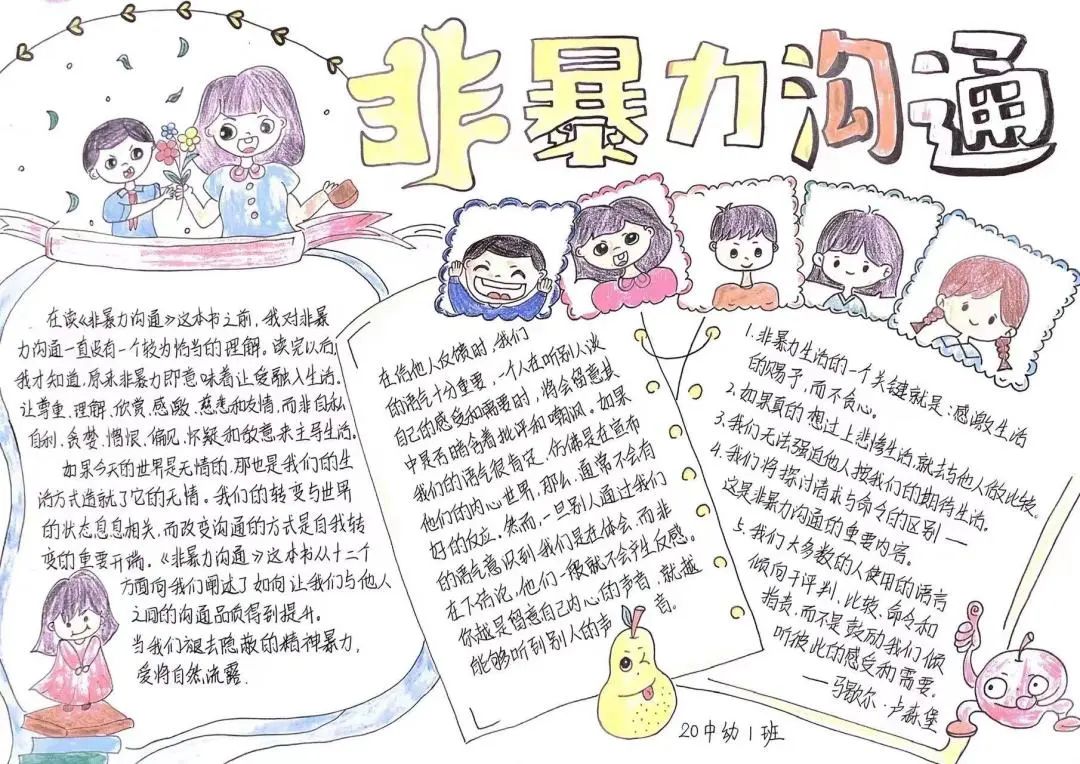 非暴力沟通
在读《非暴力沟通》这本书之前,我对非暴
力沟通一直没有一个较为恰当的理解。读完以后,
我才知道,原来非暴力即意味着让爱融入生活。
让尊重、理解、欣赏、感激、慈悲和友情,而非自私
自利、贪婪、憎恨、偏见、怀疑和敌意来主导生活。
如果今天的世界是无情的,那也是我们的生
活方式造就了它的无情。我们的转变与世界
的状态息息相关,而改变沟通的方式是自我转
变的重要开端。《非暴力沟通》这本书从十三个
方面向我们阐述了如何让我们与他人
之间的沟通品质得到提升。
当我们褪去隐蔽的精神暴力,
爱将自然流露.
在给他人反馈时,我们
的语气十分重要,一个人在听别人谈
自己的感受和需要时,将会留意其
中是否暗含着批评和嘲讽。如果
我们的语气很肯定,仿佛是在宣布
他们的内心世界,那么,通常不会有
好的反应。然而,一旦别人通过我们
的语气意识到我们是在体会,而非
在下结论,他们一般就不会产生反感。
你越是留意自己内心的声音,就越
能够听到别人的声音。
1.非暴力生活的一个关键就是:感激生活
的赐予,而不贪心。
2.如果真的想过上悲惨生活,就去与他人做比较。
3.我们无法强迫他人按我们的期待生活。
4.我们将探讨请求与命令的区别—
这是非暴力沟通的重要内容。
5.我们大多数的人使用的语言
倾向于评判、比较、命令和
指责,而不是鼓励我们倾
听彼此的感受和需要。
——马歇尔·卢森堡
20中幼1班